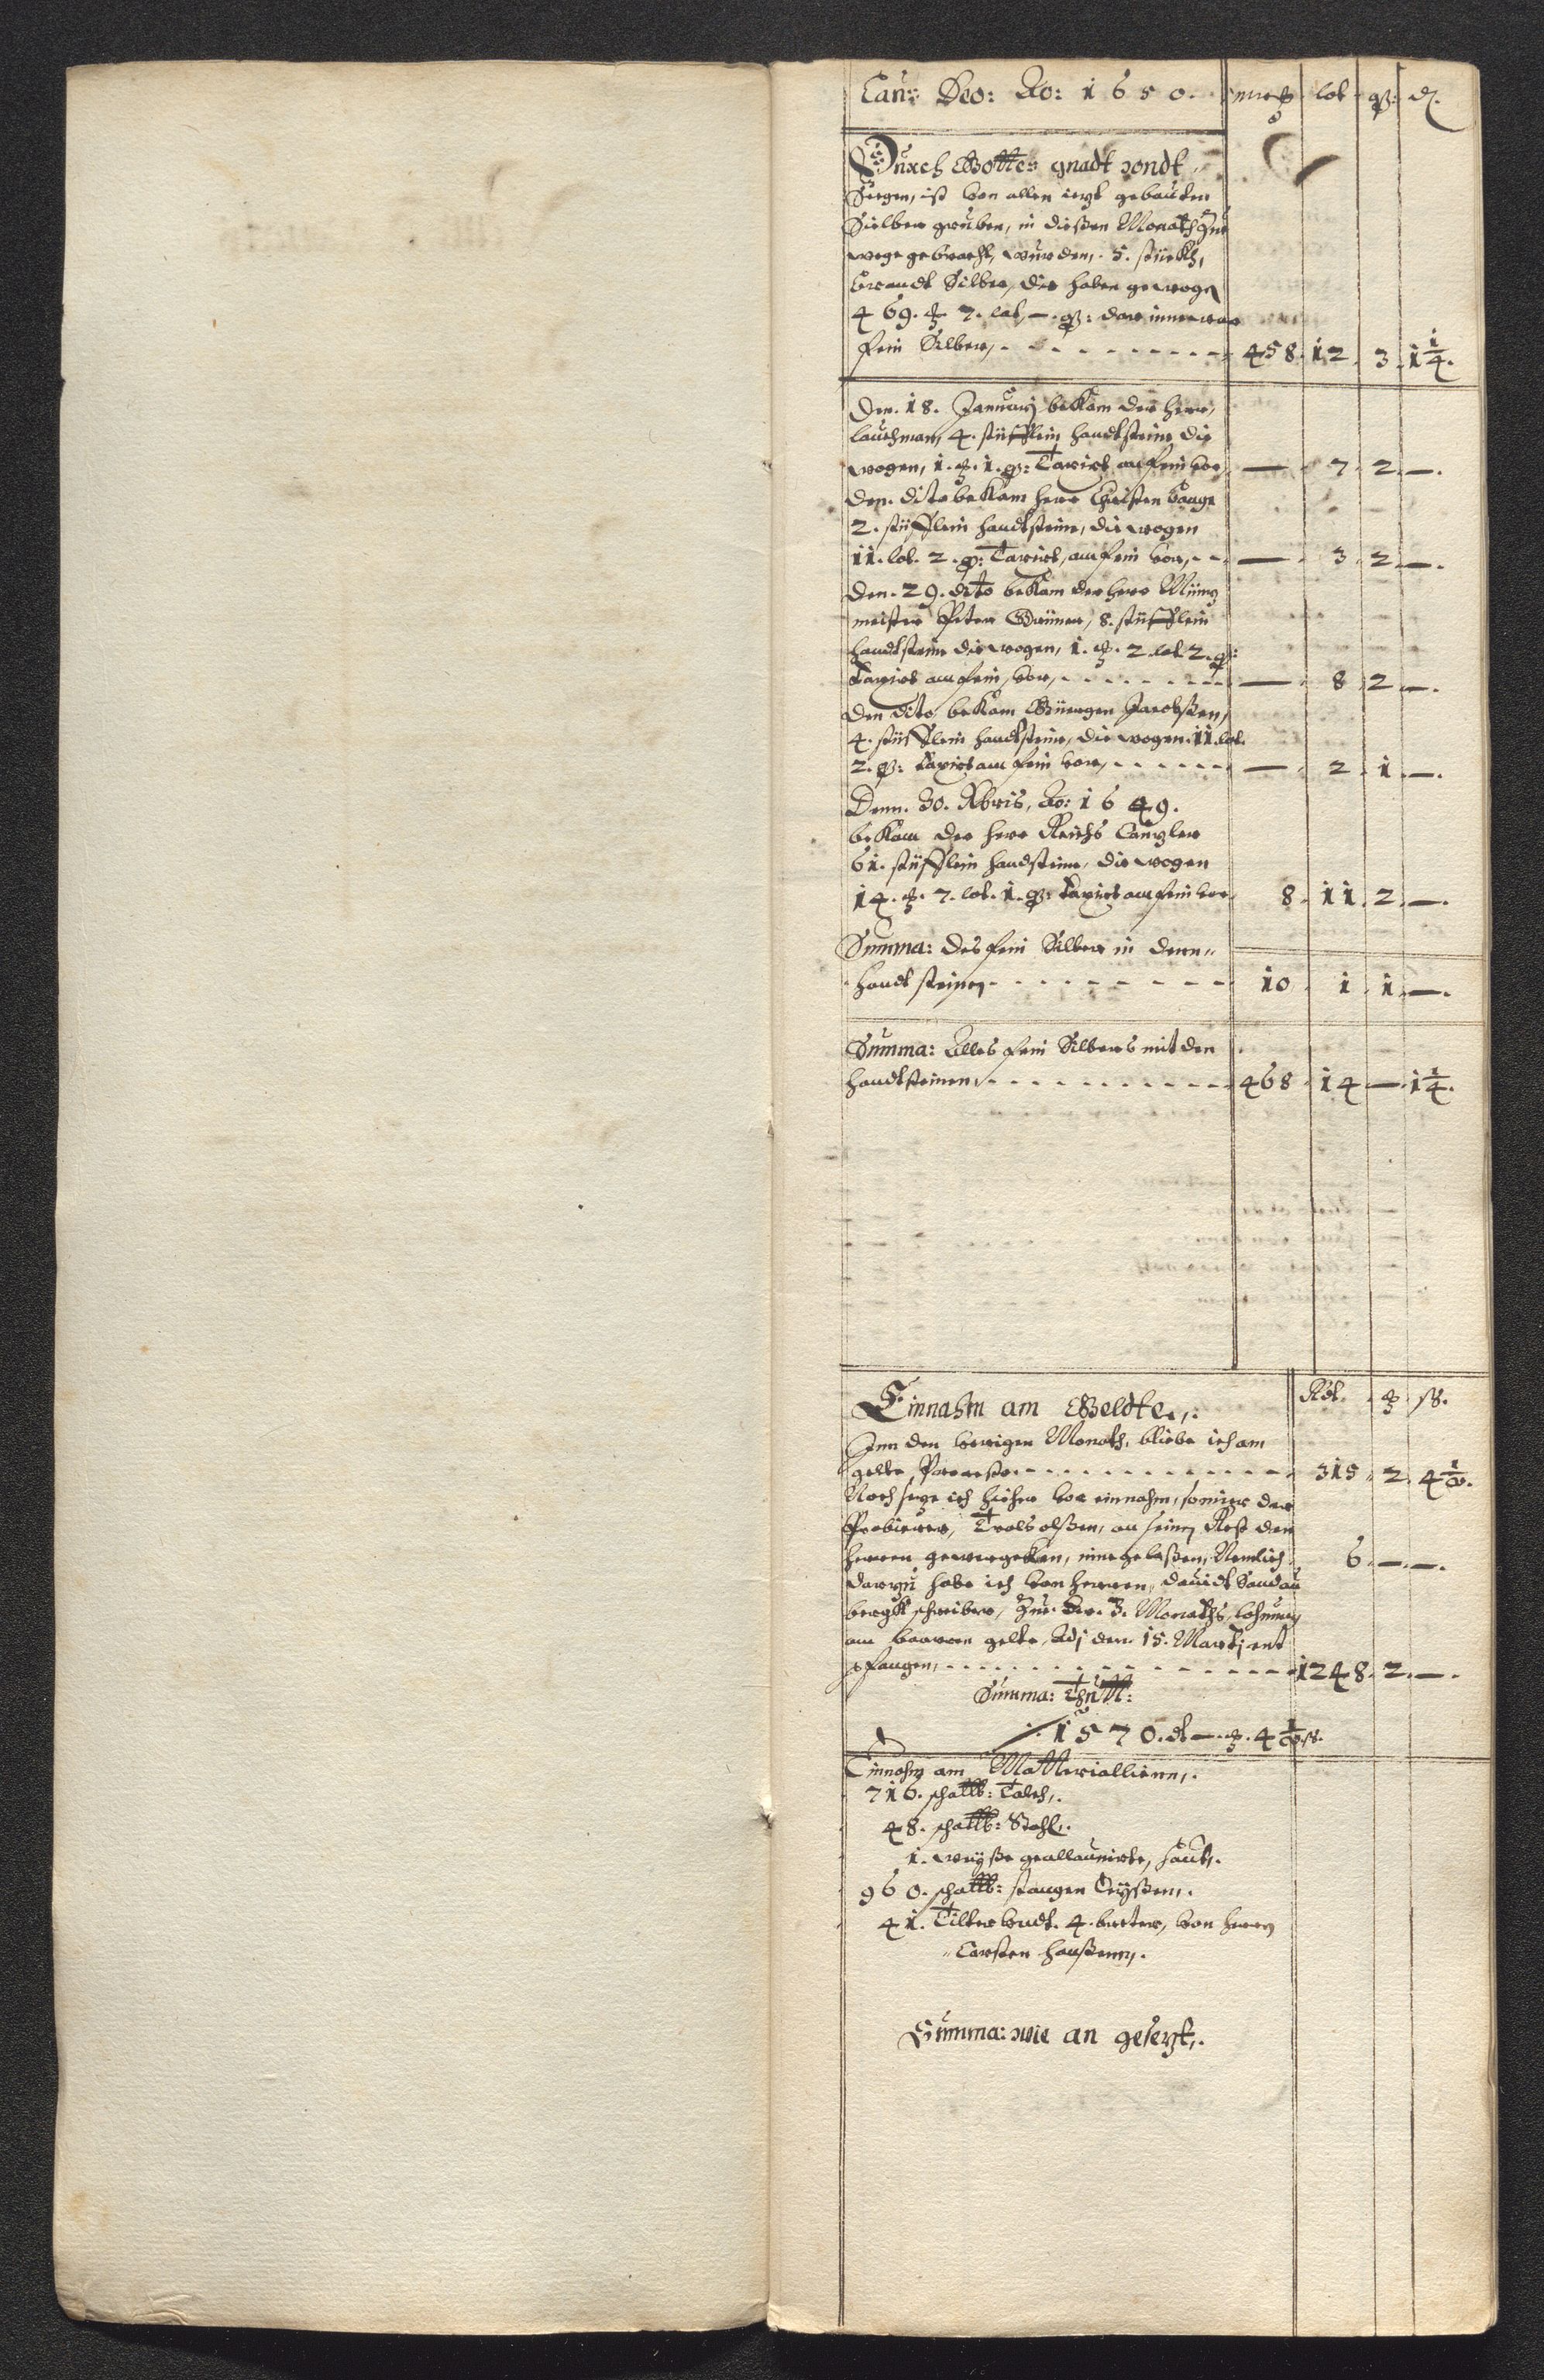 Lauß Deo: Ao: 1650. march lot q: d.
Durch Gottes gnadt vondt
Seegen, ist von allen ietzt gebauten
Sielber gruben, in diessen Monath Zue
wege gebracht, wurden, 5. stückh,
brandt Silber, die haben gewogen
469. 7. lot, —. q: dar inne war
fein Silber, - - - 458. 12. 3. 1 1/4.
Den. 18. January bekam der herr,
lauchman, 4. stüfflein handtsteine die
wogen, 1. 1. q: Taxirt an fein vor, — 7. 2. —.
Den. dito bekam herr Christen Bange
2. stüfflein handtsteine, die wogen
11. lot. 2. q: Taxirt, am fein vor, - - — 3. 2. —.
Den. 29. dito bekam der herr Müntz
meister Peter Grüner, 8. stüfflein
handtsteine die wogen, 1. 2. lot 2. q:
Taxirt am fein, vor, - - - — 8. 2. —.
Den dito bekam Güergen Jacobssen,
4. stüfflein handtsteine, die wogen. 11. lot.
2. q: taxirt am fein vor, - - - — 2. 1. —.
Denn. 30. Xbris, Ao: 1649.
bekam der herr Reichs Cantzler
61. stüfflein handsteine, die wogen
14. 7. lot. 1. q: taxirt am fein vor 8. 11. 2. —.
Summa: des fein Silber in denn
handt steinen - - - 10. 1. 1. —.
Summa: Alles fein Silbers mit den
handtsteinen, - - - 468. 14. —. 1 1/4.
Einnahm am Geldte,. Rdt. ß.
Inn den vorigen Monath, bliebe ich am
gelte - - - 315. 2. 4 1/2.
Noch setze ich hieher vor einnahm, so mier der
Probierer, Trols olssen, an seinen Rest den
herren gewergcken, inne gelassen, Nemlich 6. —. —.
Darzu habe ich von herren, Dauidt Sandau
bergk schreiber, Zue. der. 3. Monaths, lohnung
am baaren gelte, Adj den. 15. Martj ent
pfangen, - - - 1248. 2. —.
Summa: Thutt:
1570. dt —. 4 1/2 ß.
Einnahm am Matteriallienn,.
716. schallb: Talch,.
48. schallb: Stahl,.
1. weysse geallaunirte, haut,.
960. schallb: stangen Eyssen,.
41. Tilter vndt. 4. bretter, von herren
Carsten Hanssenn,.
Summa: wie an gesetzt,.